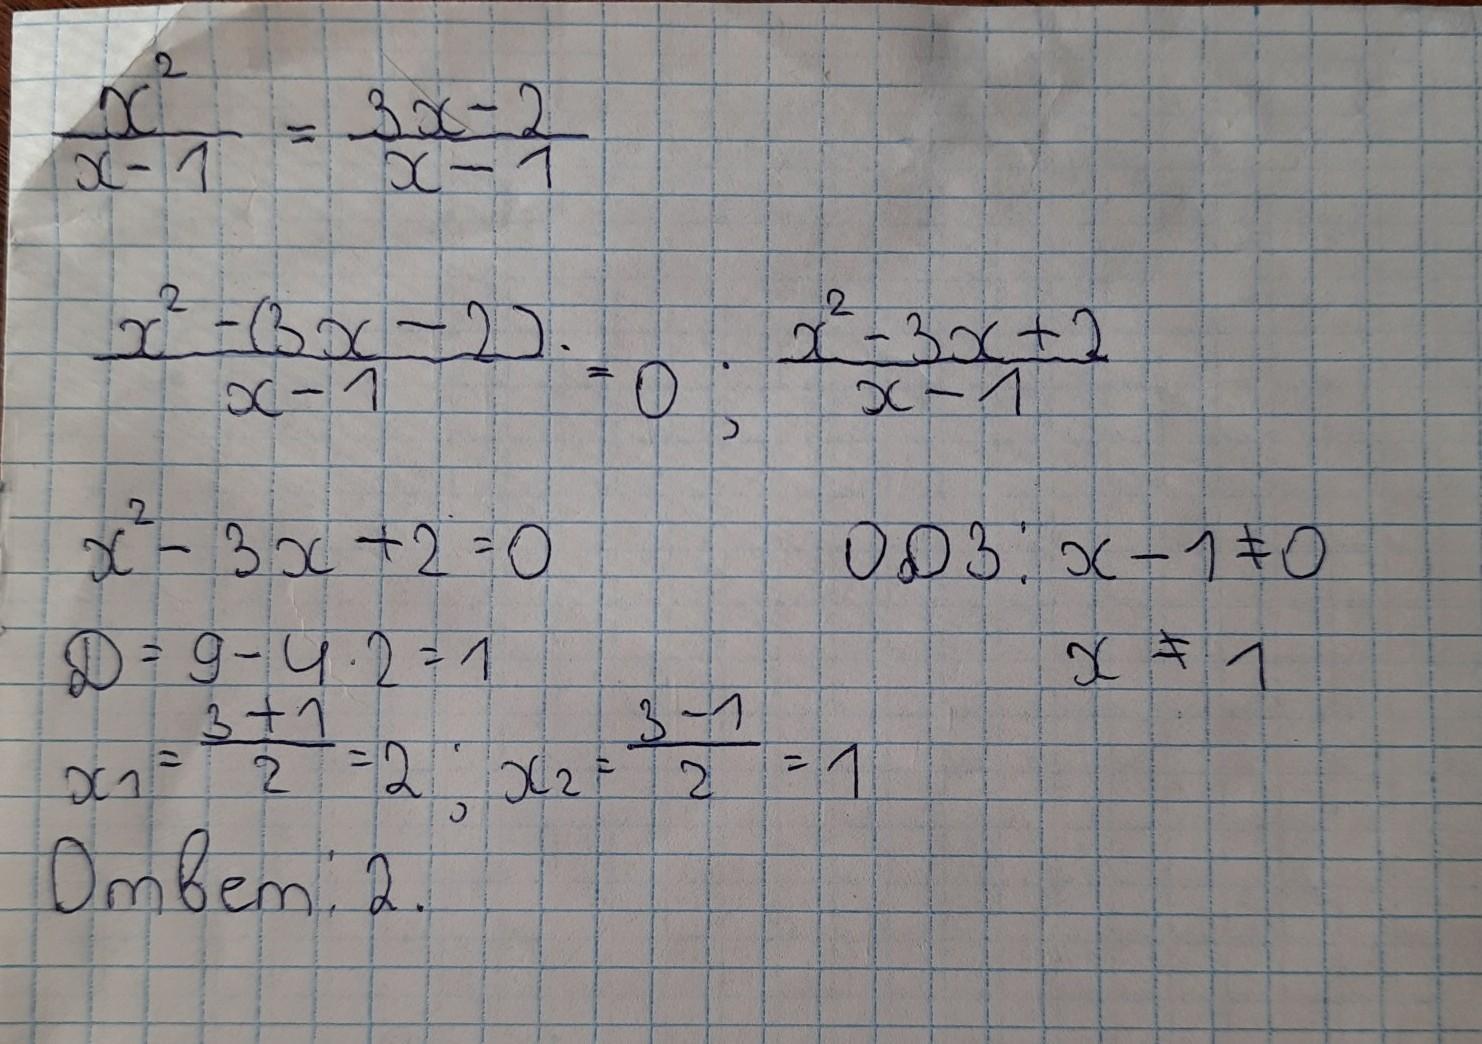 x²/(x-1) = (3x-2)/(x-1)
(x²-(3x-2).)/(x-1) = 0 ; (x²-3x+2)/(x-1)
x²-3x+2=0 ОДЗ: x-1≠0
D=9-4·2=1 x≠1
x₁=(3+1)/2=2 ; x₂=(3-1)/2=1
Ответ: 2.